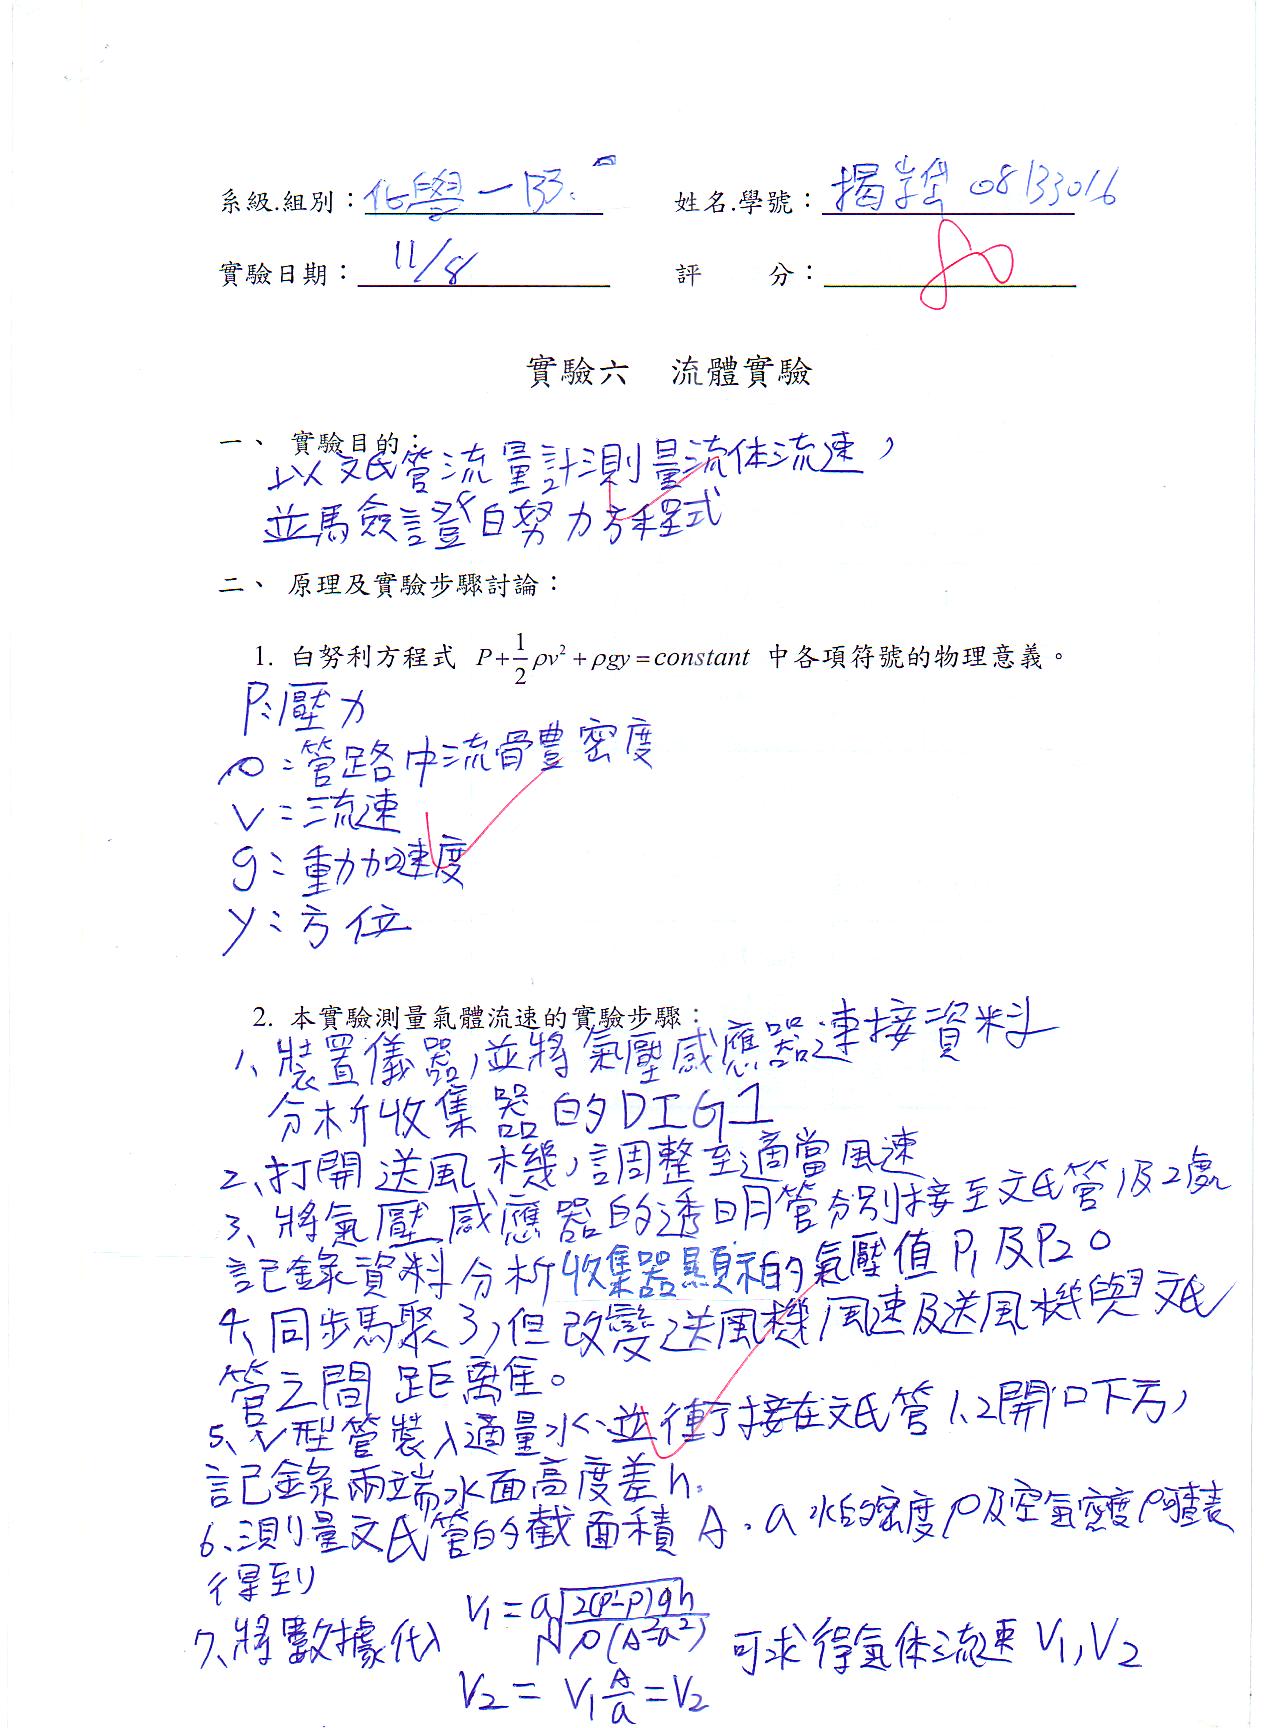 系級.組別：化學一B3.
姓名.學號：揭 08133016
實驗日期：11/8
評 分：80
實驗六 流體實驗
一、 實驗目的：
以文氏管流量計測量流体流速，
並驗證白努力方程式
二、 原理及實驗步驟討論：
1. 白努利方程式 P+1/2ρv²+ρgy=constant 中各項符號的物理意義。
P:壓力
ρ:管路中流體密度
v:流速
g:重力加速度
y:方位
2. 本實驗測量氣體流速的實驗步驟：
1、裝置儀器,並將氣壓感應器連接資料
分析收集器的DIG1
2、打開送風機,調整至適當風速
3、將氣壓感應器的透明管分別接至文氏管1及2處
記錄資料分析收集器顯示的氣壓值P₁及P₂。
4、同步驟3,但改變送風機風速及送風機與文氏
管之間距離。
5、V型管裝入適量水、並接在文氏管1、2開口下方,
記錄兩端水面高度差h.
6、測量文氏管的截面積A、a 水的密度ρ及空氣密度ρ可查表
得到
7、將數據代入 V₁=a√(2(ρ'-ρ)gh/ρ(A²-a²)) 可求得氣体流速V₁,V₂
V₂=V₁A/a=V₂